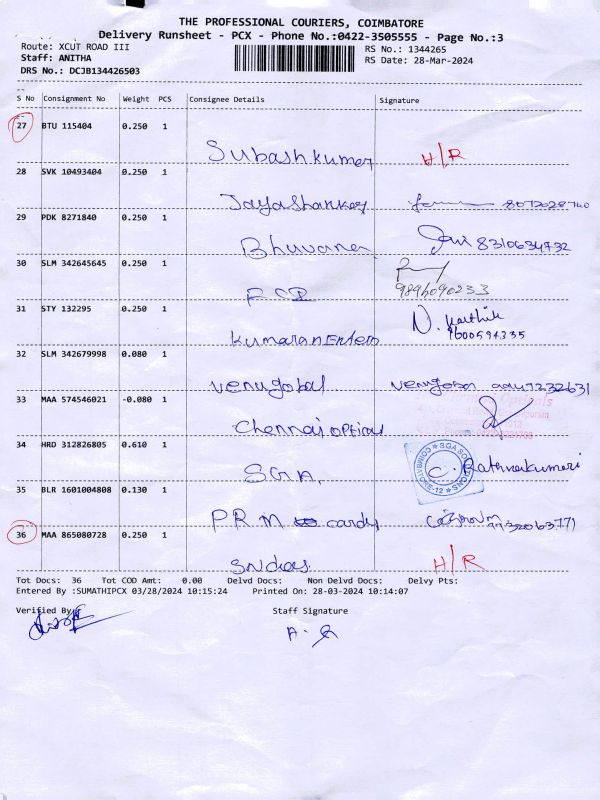 THE PROFESSIONAL COURIERS, COIMBATORE
Delivery Runsheet - PCX - Phone No.:0422-3505555 - Page No.:3
Route: XCUT ROAD III RS No.: 1344265
Staff: ANITHA RS Date: 28-Mar-2024
DRS No.: DCJB134426503
S No Consignment No Weight PCS Consignee Details Signature
27 BTU 115404 0.250 1
Subashkumar H/R
28 SVK 10493404 0.250 1
Jayashankar 8072028740
29 PDK 8271840 0.250 1
Bhuvana 8310634732
30 SLM 342645645 0.250 1
FCI 9846090233
31 STY 132295 0.250 1
Kumaran Enters N. Karthik 9600594335
32 SLM 342679998 0.080 1
Venugobal Venugobal
33 MAA 574546021 -0.080 1
Chennai Options
34 HRD 312826805 0.610 1
SGA. C. Rathnakumari
35 BLR 1601004808 0.130 1
PRM cards
36 MAA 865080728 0.250 1
H/R
Tot Docs: 36 Tot COD Amt: 0.00 Delvd Docs: Non Delvd Docs: Delvy Pts:
Entered By :SUMATHIPCX 03/28/2024 10:15:24 Printed On: 28-03-2024 10:14:07
Verified By Staff Signature